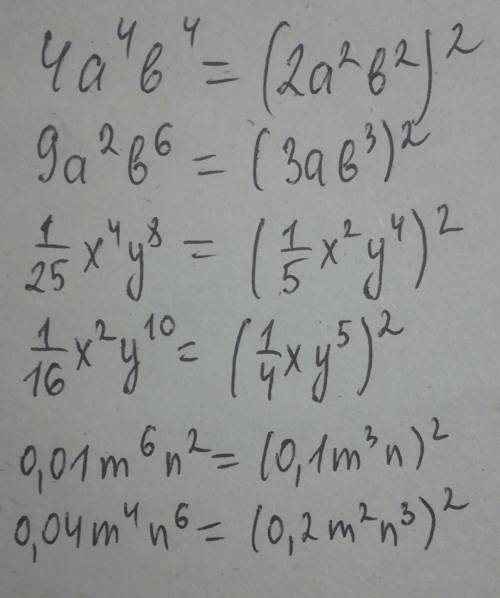 4a⁴b⁴ = (2a²b²)²
9a²b⁶ = (3ab³)²
1/25 x⁴y⁸ = (1/5 x²y⁴)²
1/16 x²y¹⁰ = (1/4 xy⁵)²
0,01m⁶n² = (0,1m³n)²
0,04m⁴n⁶ = (0,2m²n³)²